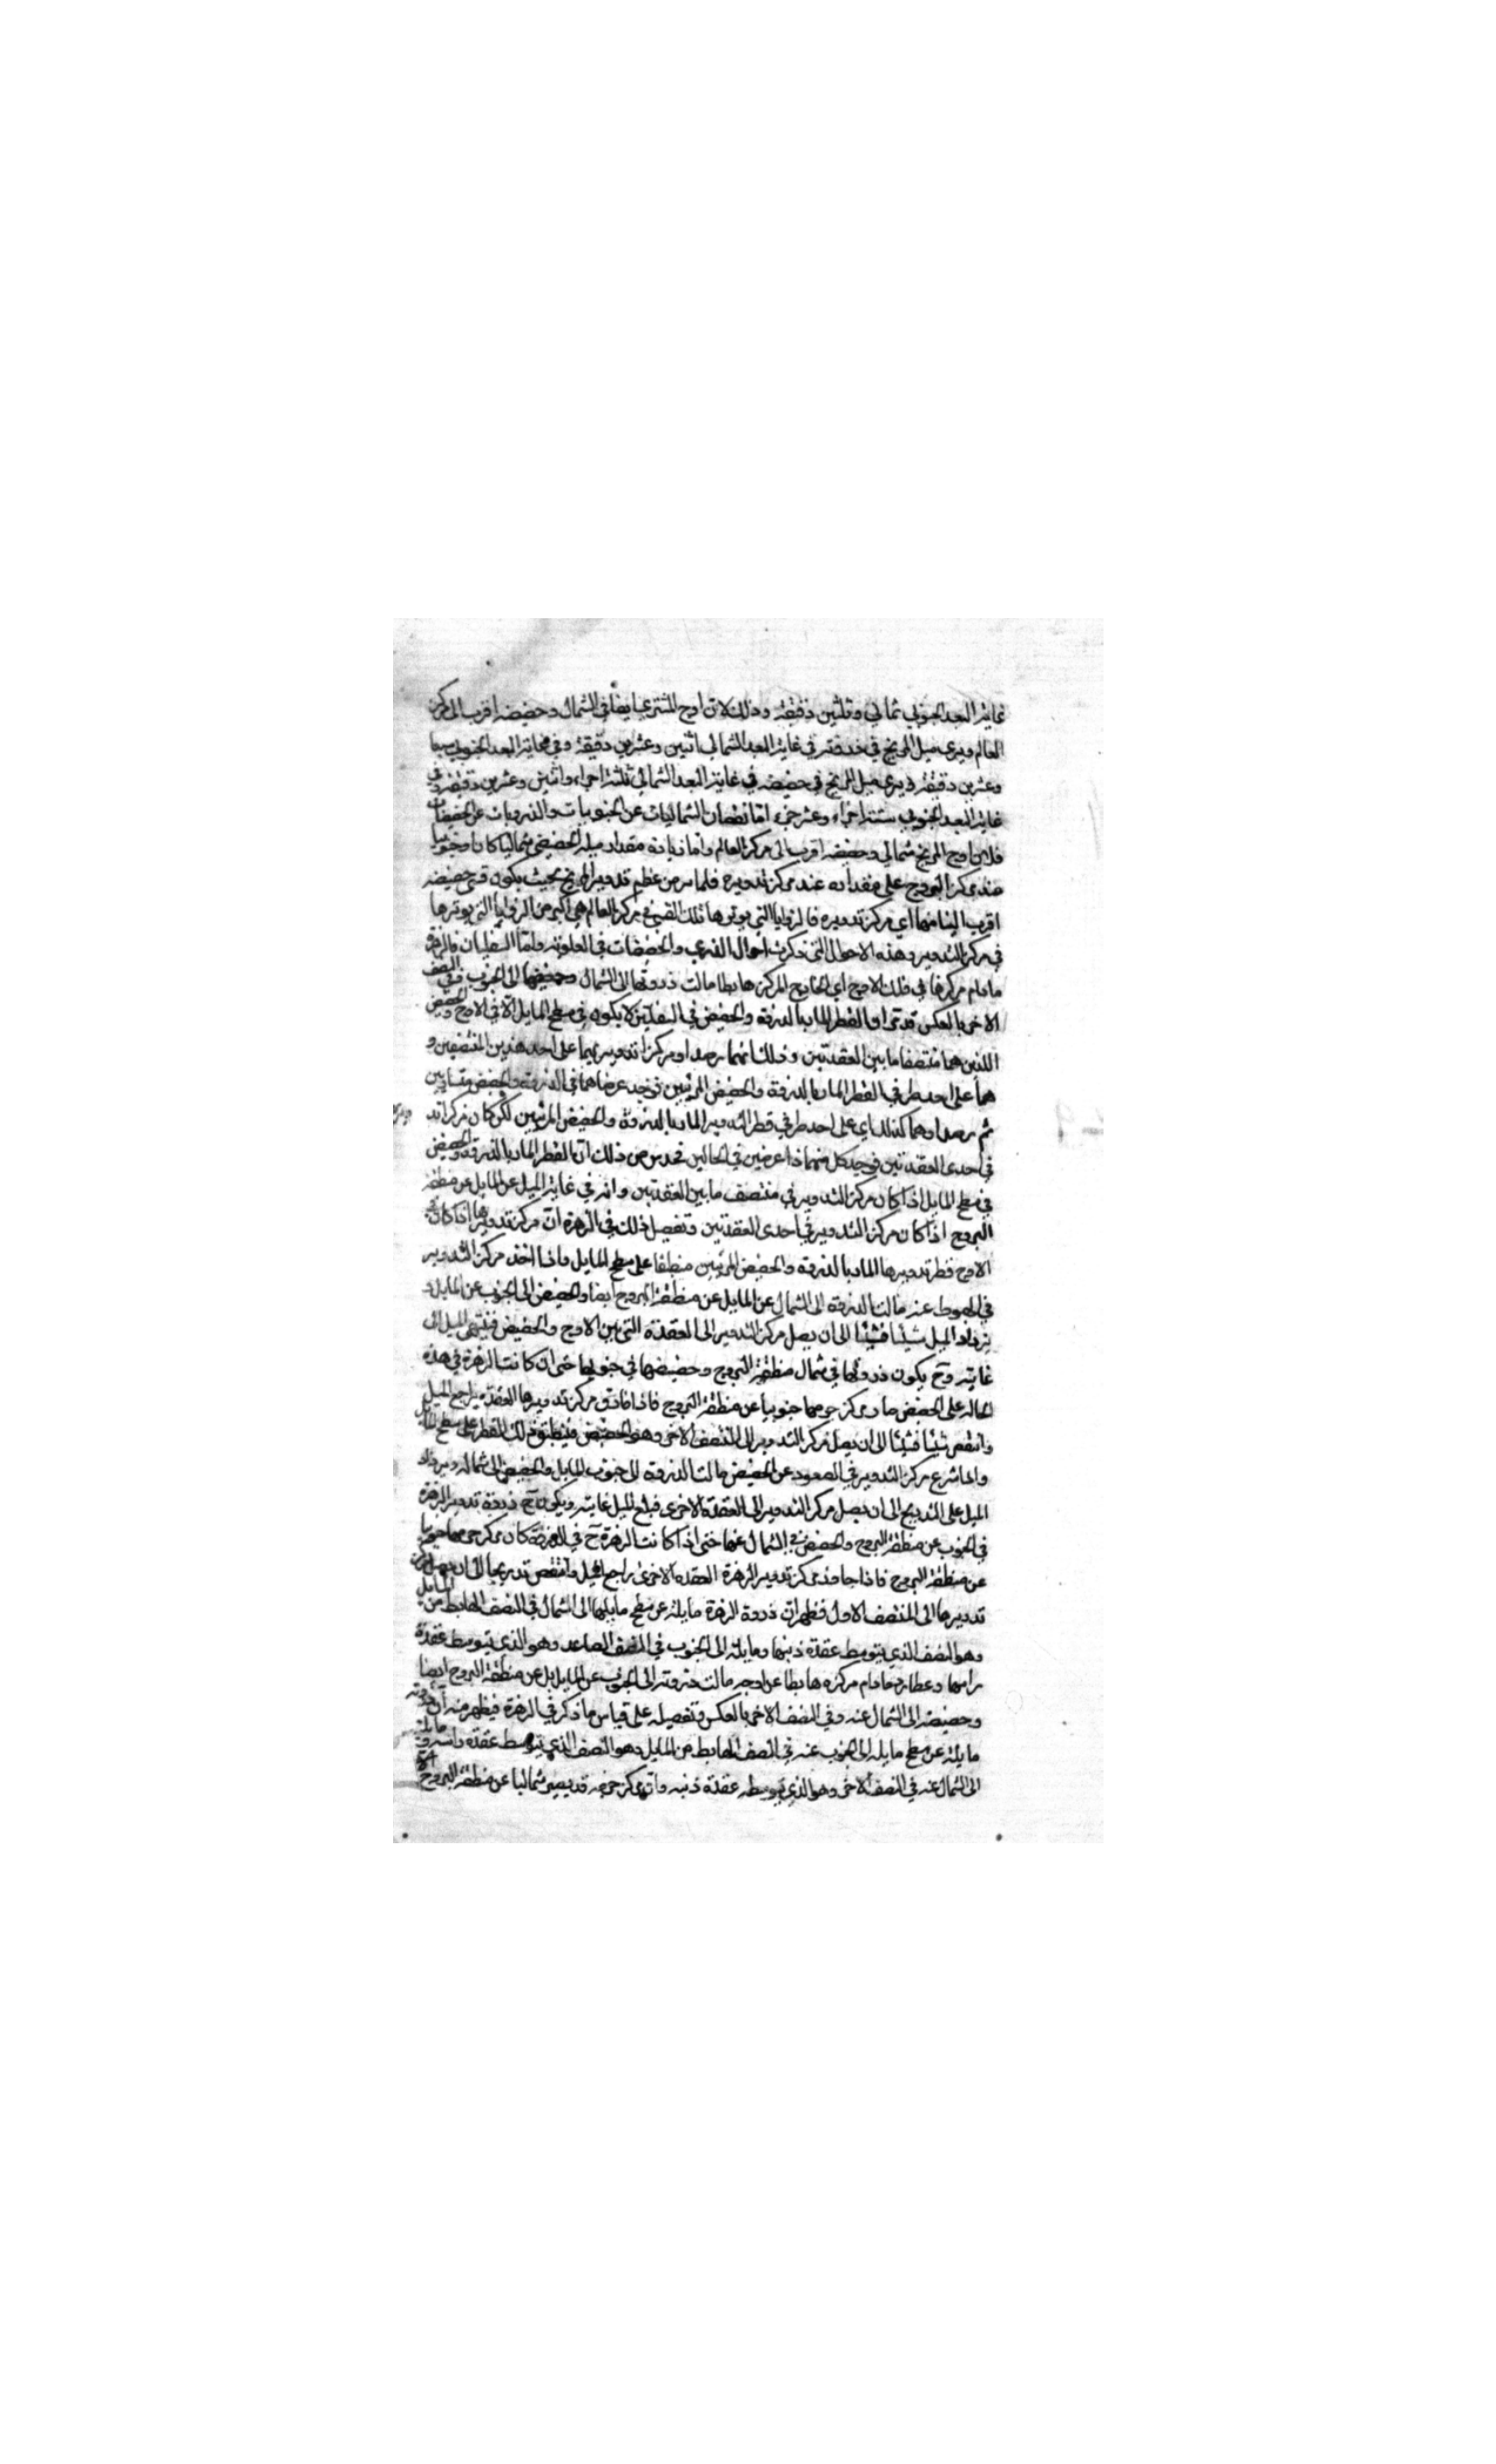 غاية البعد الجنوبي ثماني وثلثين دقيقة وذلك لان اوج المشتري ايضا في الشمال وحضيضه اقرب الى مركز
العالم ويرى ميل المريخ في ذروته في غاية البعد الشمالي اثنين وعشرين دقيقة وفي غاية البعد الجنوبي سبعا
وعشرين دقيقة ويرى ميل المريخ في حضيضه في غاية البعد الشمالي ثلثة اجزاء واثنين وعشرين دقيقة وفي
غاية البعد الجنوبي ستة اجزاء وعشر جزء اما نقصان الشماليات عن الجنوبيات والذرويات عن الحضيضيات
فلان اوج المريخ شمالي وحضيضه اقرب الى مركز العالم واما زيادة مقدار ميله الحضيضي شماليا كان او جنوبيا
عند مركز البروج على مقداره عند مركز تدويره فلما مر من عظم تدوير المريخ بحيث يكون قسي حضيضه
اقرب الينا منها اي مركز تدويره فالزوايا التي يوترها تلك القسي في مركز العالم هي اكبر من الزوايا التي يوترها
في مركز التدوير وهذه الاحوال التي ذكرت احوال الذرى والحضيضات في العلوية واما السفليان فالزهرة
ما دام مركزها في فلك الاوج اي الخارج المركز هابطا مالت ذروتها الى الشمال وحضيضها الى الجنوب وفي النصف
الاخر بالعكس قد تحقق ان القطر المار بالذروة والحضيض في السفليين لا يكون في سطح المايل الا في الاوج والحضيض
اللذين هما منتصفا ما بين العقدتين وذلك انهما رصدا ومركزا تدويريهما على احد هذين المنتصفين و
هما على احد طرفي القطر المار بالذروة والحضيض المرئيين فوجد عرضاهما في الذروة والحضيض متساويين
ثم رصدا وهما كذلك اي على احد طرفي قطر التدوير المار بالذروة والحضيض المرئيين لكن كان مركزا تد
في احدى العقدتين فوجد كل منهما ذا عرضين في الحالين فحدس من ذلك ان القطر المار بالذروة والحضيض
في سطح المايل اذا كان مركز التدوير في منتصف ما بين العقدتين وانه في غاية الميل عن المايل عن منطقة
البروج اذا كان مركز التدوير في احدى العقدتين وتفصيل ذلك في الزهرة ان مركز تدويرها اذا كان في
الاوج قطر تدويرها المار بالذروة والحضيض المرئيين منطبقا على سطح المايل واذا اخذ مركز التدوير
في الهبوط عنه مالت الذروة الى الشمال عن المايل عن منطقة البروج ايضا والحضيض الى الجنوب عن المايل و
يزداد الميل شيئا فشيئا الى ان يصل مركز التدوير الى العقدة التي بين الاوج والحضيض فينتهي الميل الى
غايته وح يكون ذروتها في شمال منطقة البروج وحضيضها في جنوبها حتى ان كانت الزهرة في هذه
الحالة على الحضيض صار مركز جرمها جنوبيا عن منطقة البروج فاذا فارق مركز تدويرها العقدة يراجع الميل
وانتقص شيئا فشيئا الى ان يصل مركز التدوير الى المنتصف الاخر وهو الحضيض فينطبق ذلك القطر على سطح المايل
ولما شرع مركز التدوير في الصعود عن الحضيض مالت الذروة الى جنوب المايل والحضيض الى شماله ويزداد
الميل على التدريج الى ان يصل مركز التدوير الى العقدة الاخرى فبلغ الميل غايته ويكون ح ذروة تدوير الزهرة
في الجنوب عن منطقة البروج والحضيض في الشمال عنها حتى اذا كانت الزهرة ح في الذروة كان مركز جرمها جنوبيا
عن منطقة البروج فاذا جاوز مركز تدوير الزهرة العقدة الاخرى يراجع الميل وانتقص تدريجا الى ان يصل مركز
تدويرها الى المنتصف الاول فظهر ان ذروة الزهرة مايلة عن سطح مايلها الى الشمال في النصف الهابط من المايل
وهو النصف الذي يتوسطه عقدة ذنبها ومايلة الى الجنوب في النصف الصاعد وهو الذي يتوسطه عقدة
راسها وعطارد ما دام مركزه هابطا عن اوجه مالت ذروته الى الجنوب عن المايل بل عن منطقة البروج ايضا
وحضيضه الى الشمال عنه وفي النصف الاخر بالعكس وتفصيله على قياس ما ذكر في الزهرة فيظهر منه ان ذروته
مايلة عن سطح مايله الى الجنوب عنه في النصف الهابط من المايل وهو النصف الذي يتوسط عقدة راسه و مايلة
الى الشمال عنه في النصف الاخر وهو الذي يتوسطه عقدة ذنبه وان مركز جرمه قد يصير شماليا عن منطقة البروج